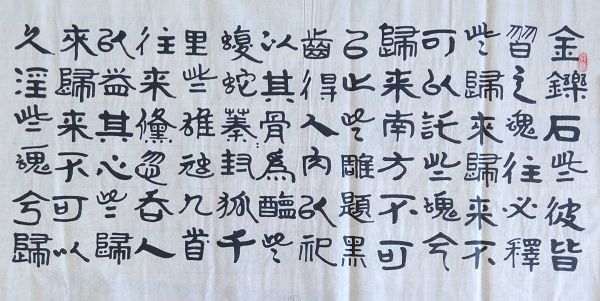 金鑠石些彼皆
習之魂往必釋
些歸來歸來不
可以託些魂兮
歸來南方不可
以止些雕題黑
齒得人肉以祀
以其骨為醢些
蝮蛇蓁〻封狐千
里些雄虺九首
往來儵忽吞人
以益其心些歸
來歸來不可以
久淫些魂兮歸